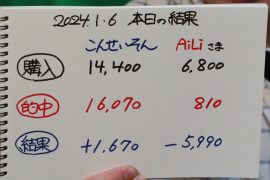 2024.1.6 本日の結果
こんせいそん AiLiさま
購入 14,400 6,800
的中 16,070 810
結果 +1,670 -5,990